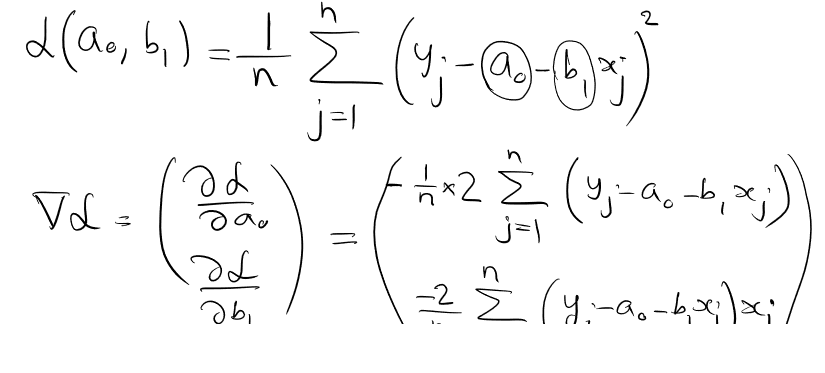 ℒ(a₀, b₁) = 1/n ∑_{j=1}^{n} (y_j - a₀ - b₁ x_j)²
∇ℒ = (∂ℒ/∂a₀, ∂ℒ/∂b₁) = (-1/n × 2 ∑_{j=1}^{n} (y_j - a₀ - b₁ x_j), -2/n ∑^{n} (y_j - a₀ - b₁ x_j) x_j)